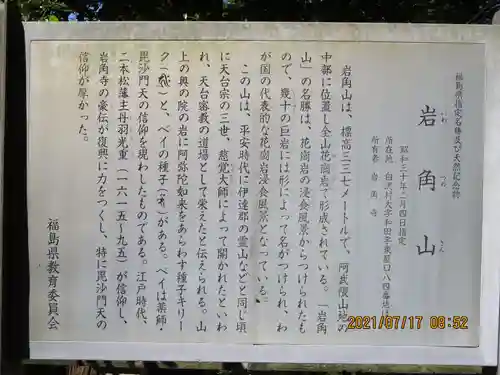 福島県指定名勝及び天然記念物
岩角山
いわつのさん
昭和三十年二月四日指定
所在地 白沢村大字和田字東屋口八四番地
所有者 岩角寺
岩角山は、標高三三七メートルで、阿武隈山地の
中部に位置し全山花崗岩で形成されている。「岩角
山」の名勝は、花崗岩の浸食風景からつけられたも
ので、幾十の巨岩には形によって名がつけられ、わ
が国の代表的な花崗岩浸食風景となっている。
この山は、平安時代に伊達郡の霊山などと同じ頃
に天台宗の三世、慈覚大師によって開かれたといわ
れ、天台密教の道場として栄えたと伝えられる。山
上の奥の院の岩に阿弥陀如来をあらわす種子キリー
ク()と、ベイの種子()がある。ベイは薬師・
毘沙門天の信仰を現わしたものである。江戸時代、
二本松藩主丹羽光重(一六一五~九五)が信仰し、
岩角寺の豪伝が復興に力をつくし、特に毘沙門天の
信仰が厚かった。
福島県教育委員会
2021/07/17 08:52